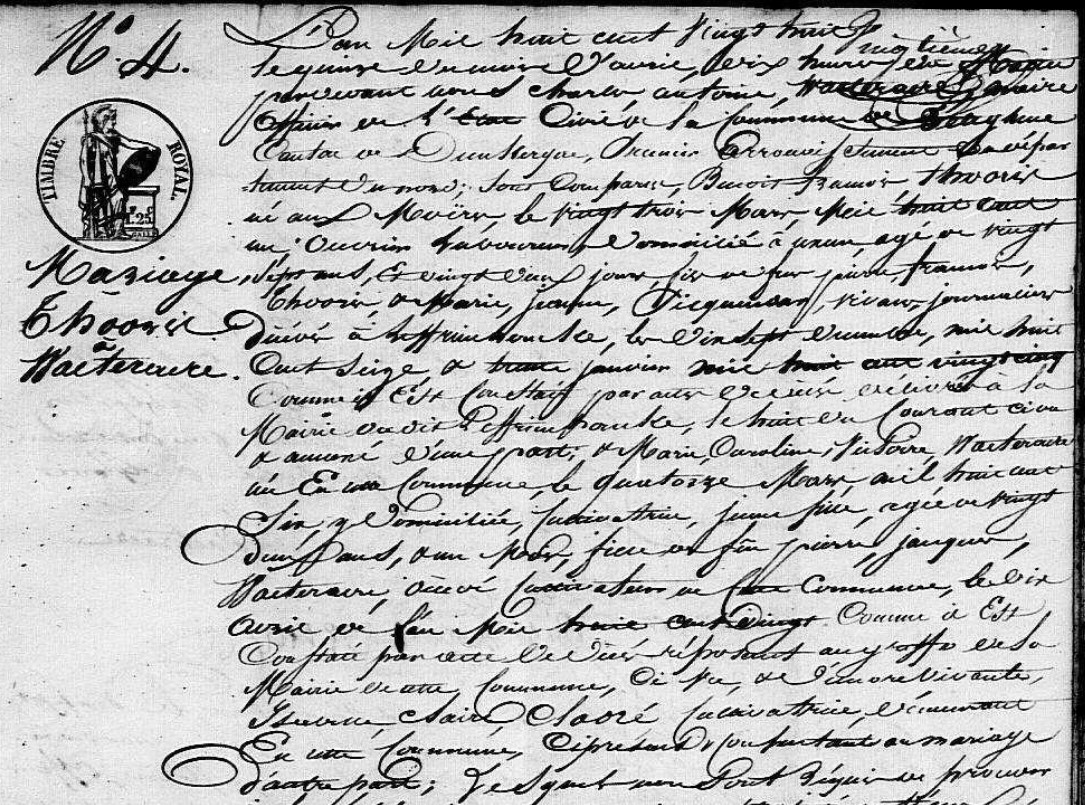 N.º 4.
TIMBRE ROYAL.
1.25
Mariage,
Thooris
à
Waeteraere.
L'an Mil huit cent Vingt huit
le quinze du mois d'avril, dix heures du Matin
pardevant nous Charles, antoine, Maire
officier de l'Etat Civil de la Commune de
Canton de Dunkerque, Premier Arrondissement Du dépar
-tement du nord; sont Comparus, Benoit francois, Thooris
né aux Moëres, le vingt trois Mars Mil huit cent
un, Ouvrier Laboureur, Domicilié à agé de vingt
sept ans, Et vingt Deux jours, fils de feu pierre, francois,
Thooris, & Marie, jeanne, vivans journaliers
Décédés à Leffrinckoucke, les Dix sept Décembre, mil huit
Cent Seize & trente janvier mil huit cent vingt cinq
Comme il Est Constaté par actes de décès délivrés à la
Mairie dudit Leffrinckoucke, le huit du Courant ci vu
& annexé D'une part; & Marie, Caroline, Victoire, Waeteraere
née En cette Commune, le quatorze Mars, mil huit cent
Six, y Domiciliée, Cultivatrice, jeune fille, agée de vingt
Deux ans, & un Mois, fille de feu pierre, jacques,
Waeteraere, décédé Cultivateur de Cette Commune, le dix
avril de l'an Mil huit cent Vingt Comme il Est
Constaté par acte De Décès réposant au greffe de la
Mairie de cette Commune, & D'encore vivante,
claire Cultivatrice, demeurant
En cette Commune, Ciprésent & Consentant au mariage
d'autre part; Lesquels nous Sont Réquis de procéder